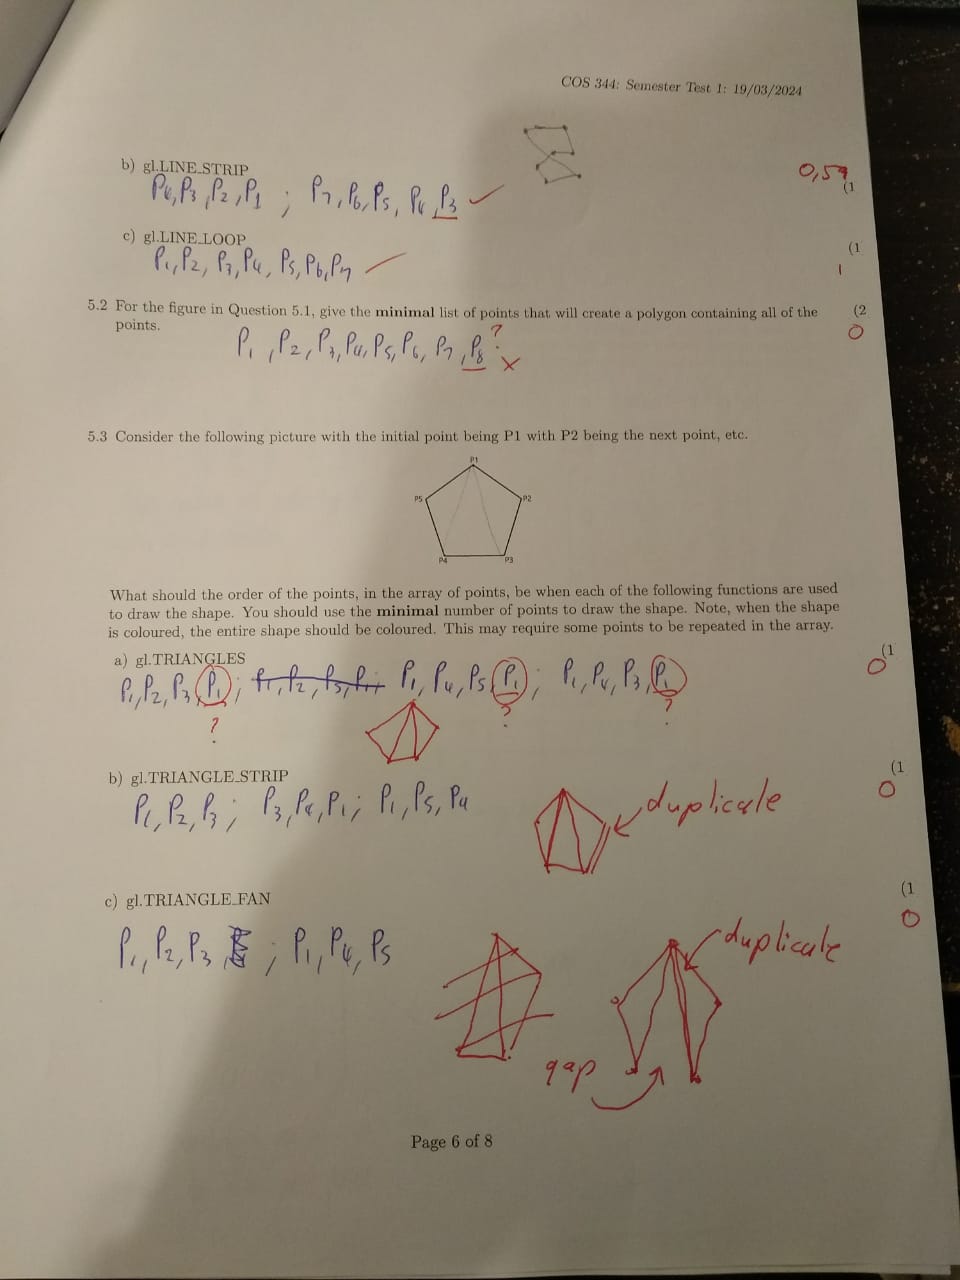 COS 344: Semester Test 1: 19/03/2024
b) gl.LINE_STRIP
0,5
(1
P4,P3,P2,P1 ; P7,P6,P5,P4,P3
c) gl.LINE_LOOP
(1
P1,P2,P3,P4,P5,P6,P7
1
5.2 For the figure in Question 5.1, give the minimal list of points that will create a polygon containing all of the
(2
points.
0
P1,P2,P3,P4,P5,P6,P7,P8 ?
5.3 Consider the following picture with the initial point being P1 with P2 being the next point, etc.
P1
P5 P2
P4 P3
What should the order of the points, in the array of points, be when each of the following functions are used
to draw the shape. You should use the minimal number of points to draw the shape. Note, when the shape
is coloured, the entire shape should be coloured. This may require some points to be repeated in the array.
a) gl.TRIANGLES
(1
0
P1,P2,P3,P1 ; P1,P4,P5,P1 ; P1,P4,P3,P1
? ? ?
b) gl.TRIANGLE_STRIP
(1
0
P1,P2,P3 ; P3,P4,P1 ; P1,P5,P4
duplicate
c) gl.TRIANGLE_FAN
(1
0
P1,P2,P3 ; P1,P4,P5
duplicate
gap
Page 6 of 8